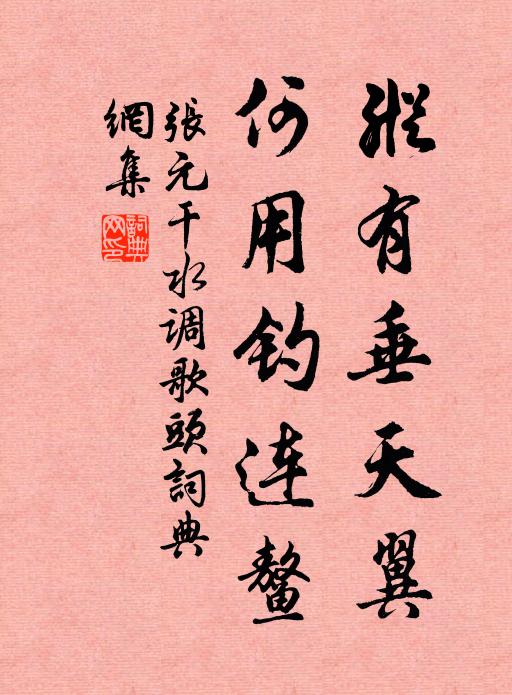 縱有垂天翼
何用钓连鳌
張元干水调歌頭詞典
網集
詞典網印